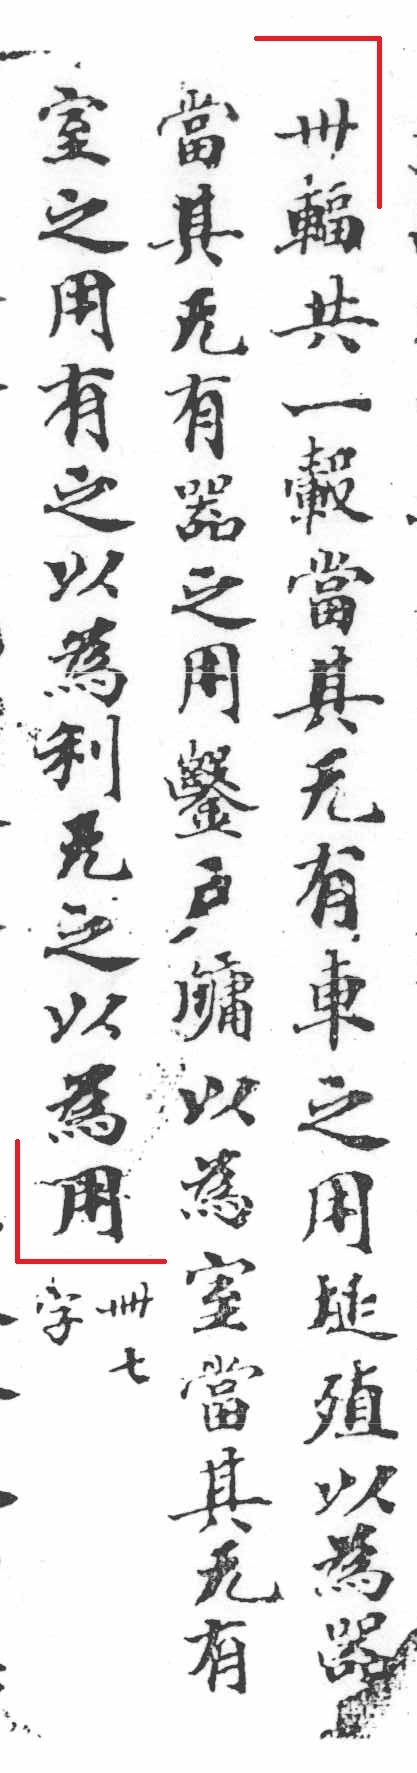 卅輻共一轂當其无有車之用埏殖以為器
當其无有器之用鑿戶牖以為室當其无有
室之用有之以為利无之以為用
卌七
字